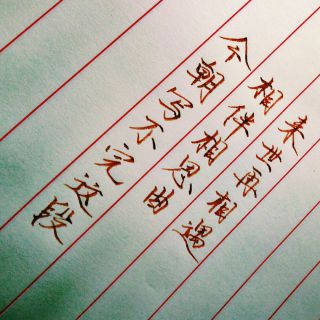 今朝写不完这段
相伴相思曲
来世再相遇